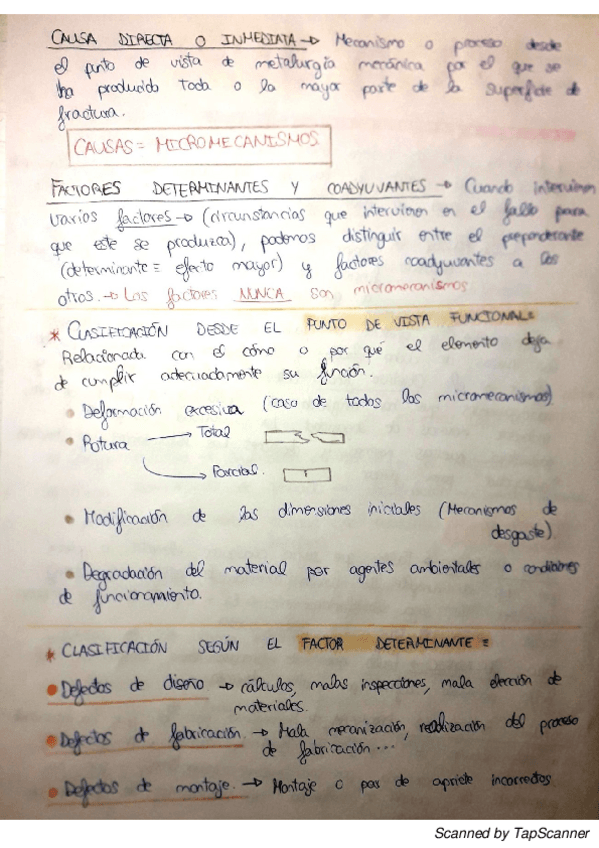 CAUSA DIRECTA O INMEDIATA → Mecanismo o proceso desde
el punto de vista de metalurgia mecánica por el que se
ha producido toda o la mayor parte de la superficie de
fractura.
CAUSAS = MICROMECANISMOS
FACTORES DETERMINANTES Y COADYUVANTES → Cuando intervienen
varios factores → (circunstancias que intervienen en el fallo para
que este se produzca), podemos distinguir entre el preponderante
(determinante = efecto mayor) y factores coadyuvantes a los
otros. → Los factores NUNCA son micromecanismos
* CLASIFICACIÓN DESDE EL PUNTO DE VISTA FUNCIONAL =
Relacionada con el cómo o por qué el elemento deja
de cumplir adecuadamente su función.
• Deformación excesiva (caso de todos los micromecanismos)
• Rotura → Total
→ Parcial.
• Modificación de las dimensiones iniciales (Mecanismos de
desgaste)
• Degradación del material por agentes ambientales o condiciones
de funcionamiento.
* CLASIFICACIÓN SEGÚN EL FACTOR DETERMINANTE =
• Defectos de diseño → cálculos, malas inspecciones, mala elección de
materiales.
• Defectos de fabricación. → Mala mecanización, del proceso
de fabricación...
• Defectos de montaje. → Montaje o par de apriete incorrectos
Scanned by TapScanner